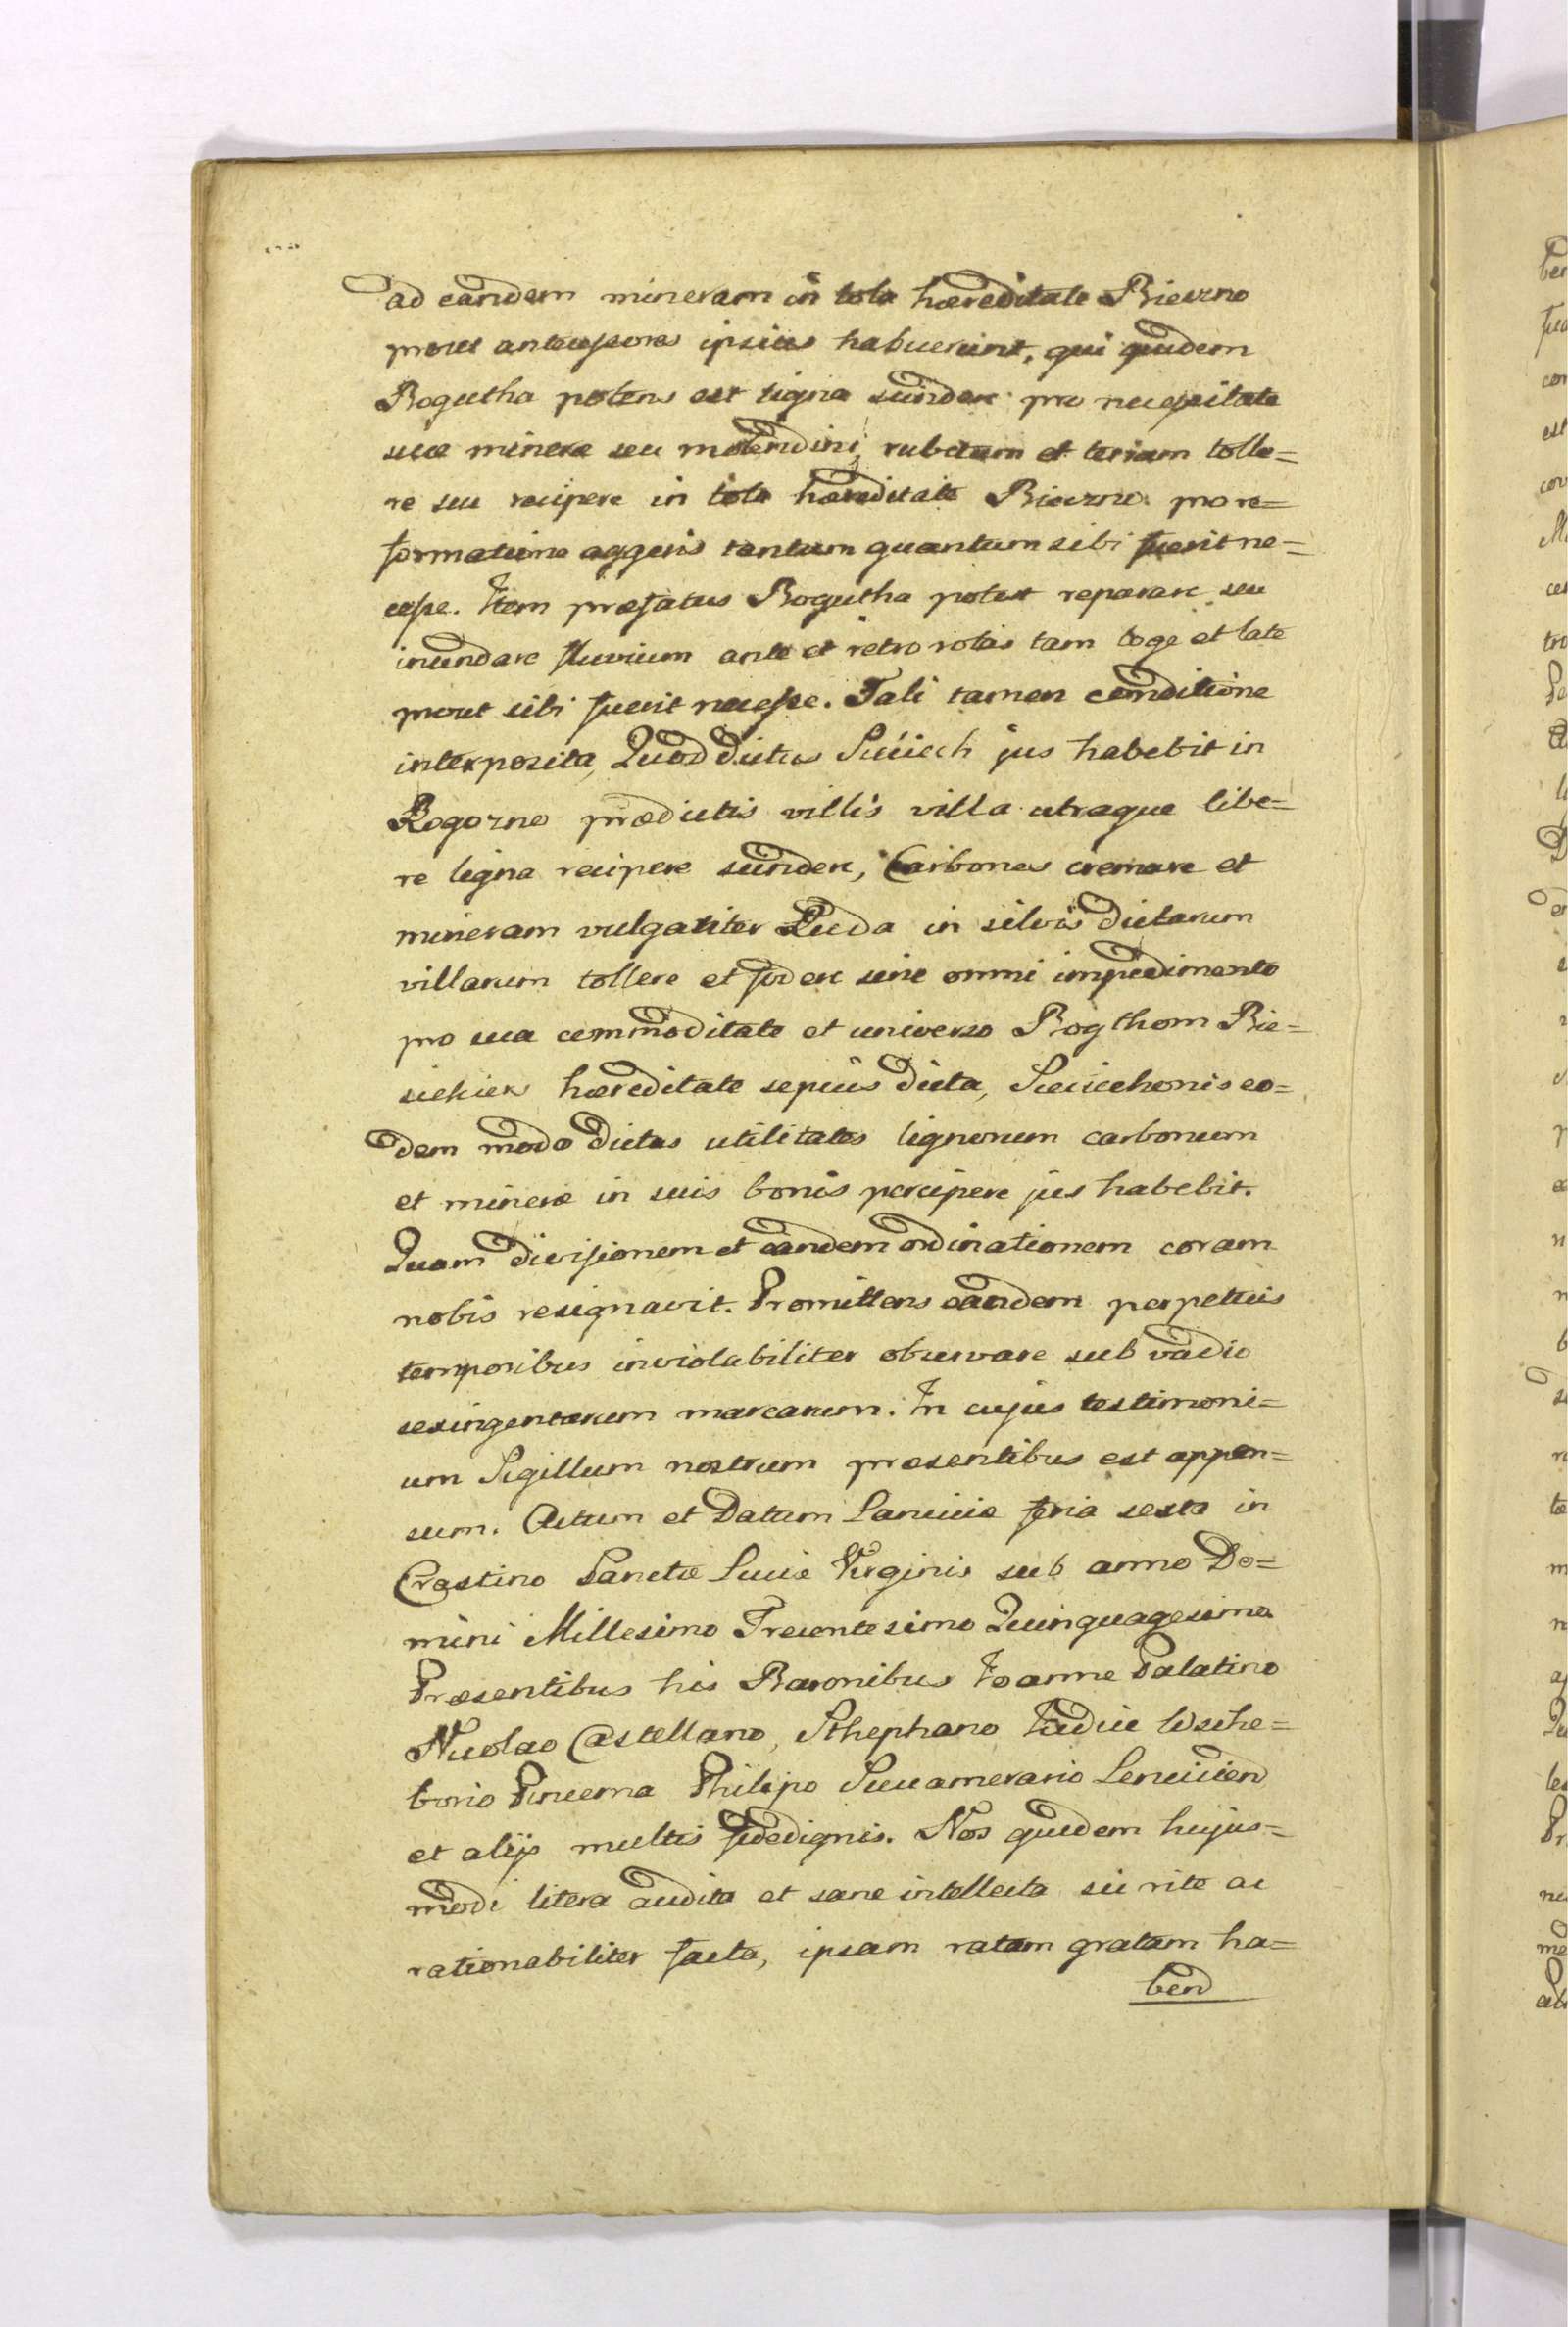 ad eandem mineram in tota hæreditate Biezno
prout antecessores ipsius habuerunt, qui quidem
Bogutha potens est ligna scindere pro necessitate
suæ mineræ seu molendini, rubetum et terram tolle=
re seu recipere in tota hæreditate Biezno pro re=
formatione aggeris tantum quantum sibi fuerit ne=
cesse. Item præfatus Bogutha potest reparare seu
inundare fluvium ante et retro rotas tam loge et late
prout sibi fuerit necesse. Tali tamen conditione
interposita, Quod dictus Suiech jus habebit in
Rogozno prædictis villis villa utraque libe=
re ligna recipere scindere, Carbones cremare et
mineram vulgariter Ruda in silvis dictarum
villarum tollere et fodere sine omni impedimento
pro sua commoditate et universo Bogthom Bie=
siekier hæreditate sepius dicta, Suiechonis eo=
dem modo dictas utilitates lignorum carbonum
et mineræ in suis bonis percipere jus habebit.
Quam divisionem et eandem ordinationem coram
nobis resignavit. Promittens eandem perpetuis
temporibus inviolabiliter observare sub vadio
sexingentarum marcarum. In cujus testimoni=
um Sigillum nostrum præsentibus est appen=
sum. Actum et Datum Lanciciæ feria sexta in
Crastino Sanctæ Luciæ Virginis sub anno Do=
mini Millesimo Trecentesimo Quinquagesimo
Præsentibus his Baronibus Joanne Palatino
Nicolao Castellano, Sthephano Judice Wsche=
borio Pincerna Philipo Succamerario Lencicien
et alijs multis fidedignis. Nos quidem hujus=
modi litera audita et sane intellecta sic rite ac
rationabiliter facta, ipsam ratam gratam ha=
ben